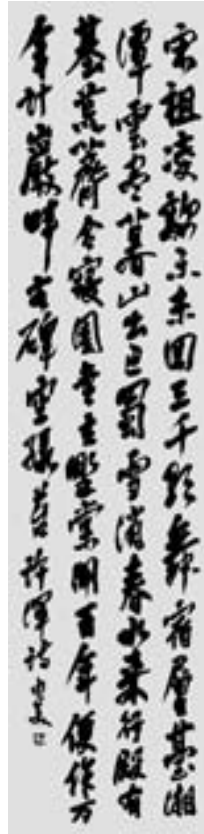 宋祖凌歊樂未回三千歌舞宿層臺湘
潭雲盡暮山出巴蜀雪消春水来行殿有
基荒薺合寢園無主野棠開百年便作万
年計巖畔古碑空綠苔許渾詩